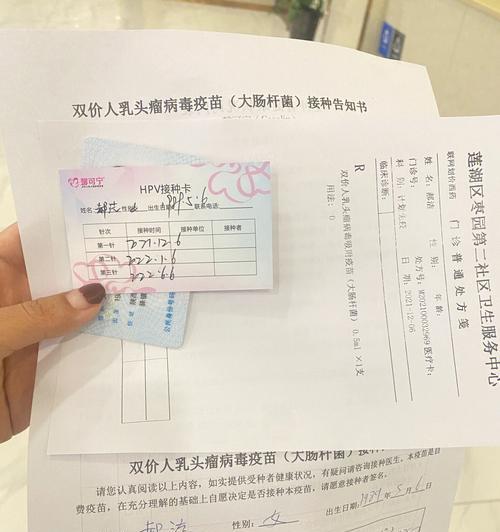 双价人乳头瘤病毒疫苗（大肠杆菌）接种告知书
馨可宁
HPV接种卡
姓名: 性别 出生日期: 联系电话:
针次 接种时间 接种单位 接种者
第一针 2021.12.6
第二针 2022.1.6
第三针 2022.6.6
莲湖区枣园第二社区卫生服务中心
联网划价西药 门诊普通处方笺
姓名: 郝洁 性别: 年龄:
门诊号: 处方号: 医疗卡:
科别: 计划免疫 日期: 2021-12-06
临床诊断:
R
双价人乳头瘤病毒吸附疫苗（大肠杆菌） 0.5ml ×1支
用法: 0
双价人乳头瘤病毒疫苗（大肠杆菌）接种
请您认真阅读以上内容，如实提供受种者健康状况，有疑问请咨询接种医生。本疫苗是自
费疫苗，在充分理解的基础上自愿决定是否接种本疫苗，请愿意接种者签名。
出生日期: 1989年5月6日
郝洁 性别: 女